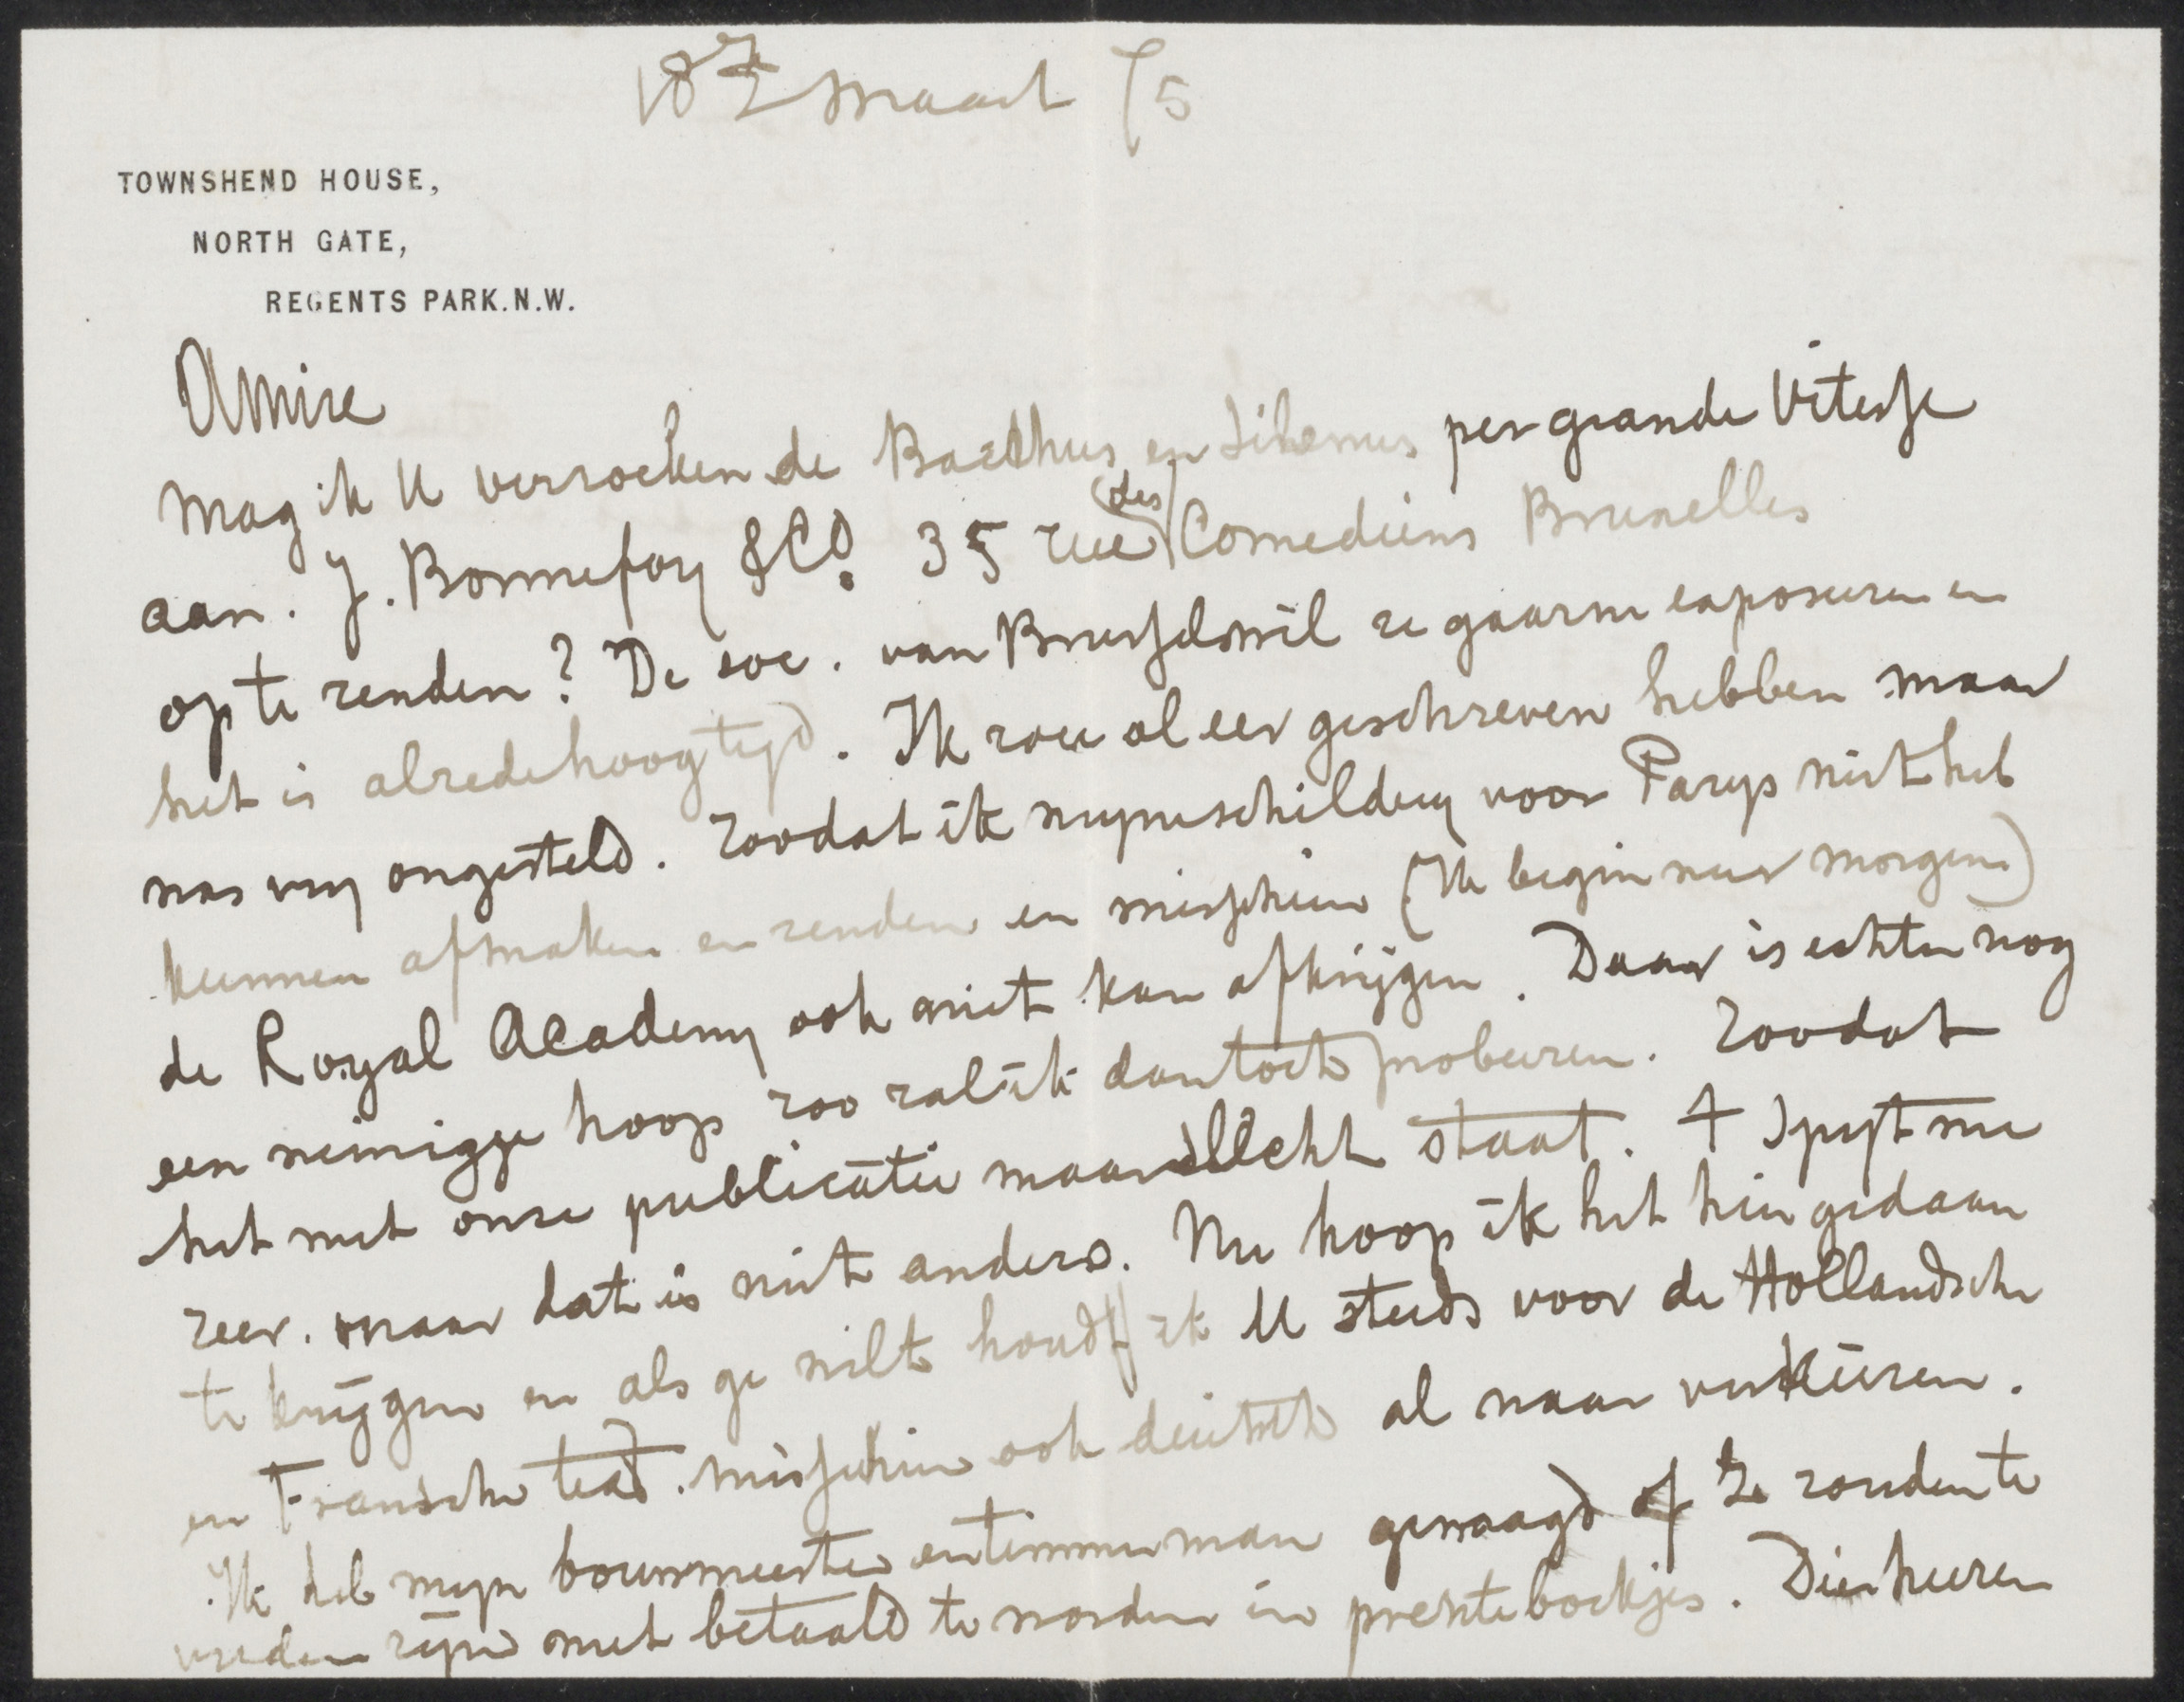 18 7/2 Maart 75
TOWNSHEND HOUSE,
NORTH GATE,
REGENTS PARK. N.W.
Amice
Mag ik U verzoeken de Bacchus en Silenus per grande Vitesse
aan. J. Bonnefoy & Co. 35 rue (des) Comediens Bruxelles
op te zenden? De soc. van Brussel wil ze gaarne exposeeren en
het is alrede hoog tijd. Ik zou al eer geschreven hebben maar
was vry ongesteld. Zoodat ik myne schildery voor Parys niet heb
kunnen afmaken en zenden en misschien (Ik begin weer morgen)
de Royal Academy ook niet kan afkrijgen. Daar is echter nog
een weinigje hoop zoo zal ik dan toch probeeren. Zoodat
het met onze publicatie maar slecht staat. t Spyt me
zeer. maar dat is niet anders. Nu hoop ik het hier gedaan
te krijgen en als ge wilt houdt ik U steeds voor de Hollandsche
en Fransche text. misschien ook deutsch al naar verkiezen.
Ik heb myn bouwmeester en timmerman gevraagd of Ze zouden te
vreden zyn met betaald te worden in prenteboekjes. Die heeren